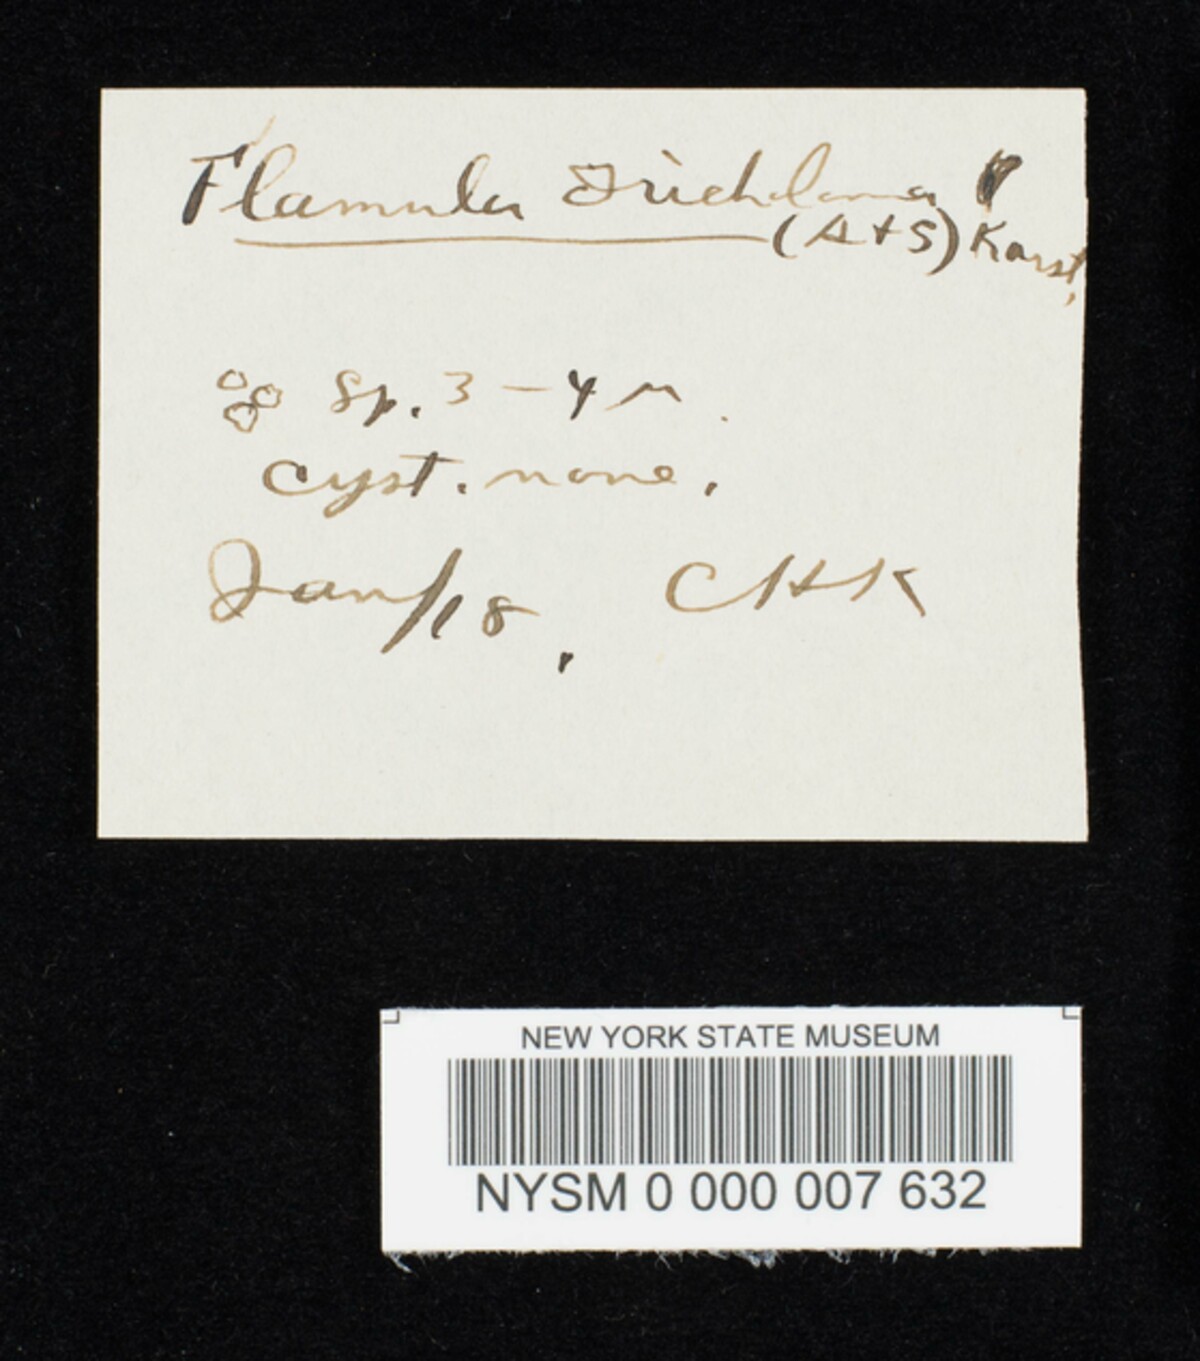 Flamula Tricholoma
(A+S) Karst.
Sp. 3 – 4 μ.
cyst. none.
Jan/18. CHK
NEW YORK STATE MUSEUM
NYSM 0 000 007 632